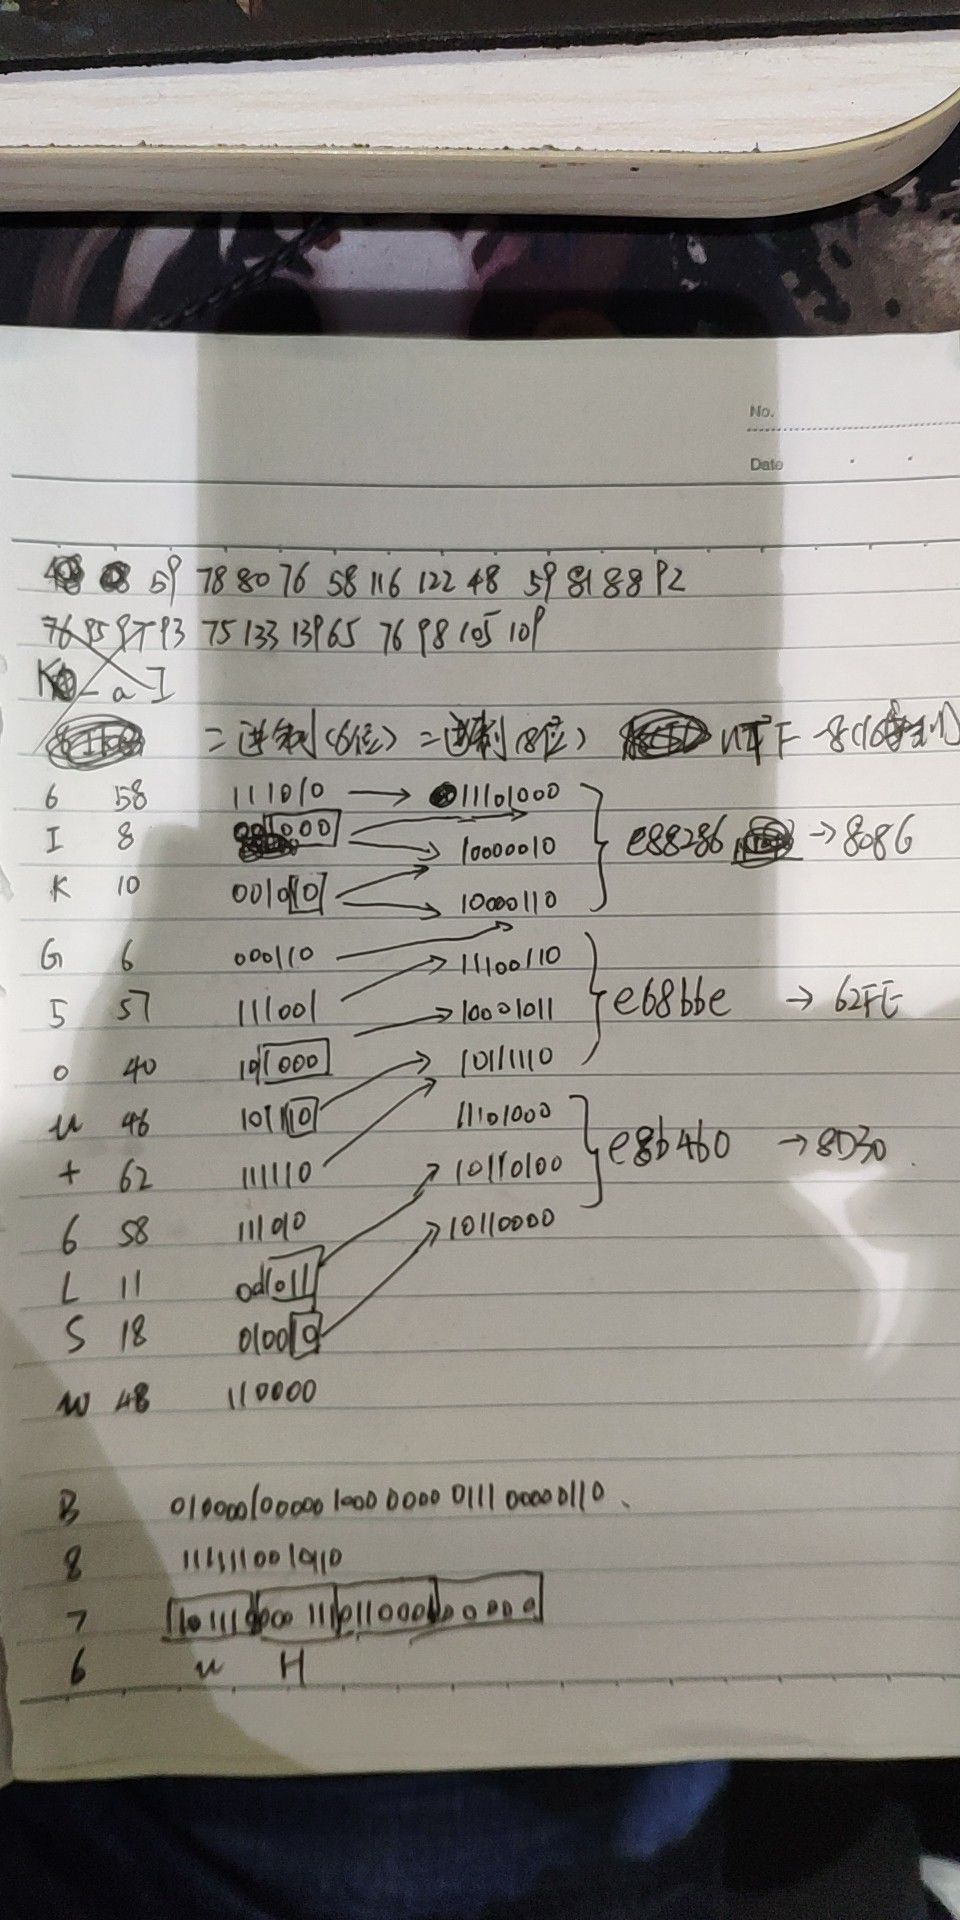 No.
Date
59 78 80 76 58 116 122 48 59 81 88 92
76 95 97 93 75 133 139 65 76 98 105 109
K - a I
二进制(6位) 二进制(8位) UTF-8(16进制)
6 58 111010 → 11101000
I 8 001000 10000010 e88286 → 8086
K 10 001010 10000110
G 6 000110
5 57 111001 11100110
o 40 101000 10001011 e68bbe → 62FE
u 46 101110 10111110
+ 62 111110 11101000
6 58 111010 10110100 e8b4b0 → 8D30
L 11 001011 10110000
S 18 010010
w 48 110000
B
8
7
6 u H